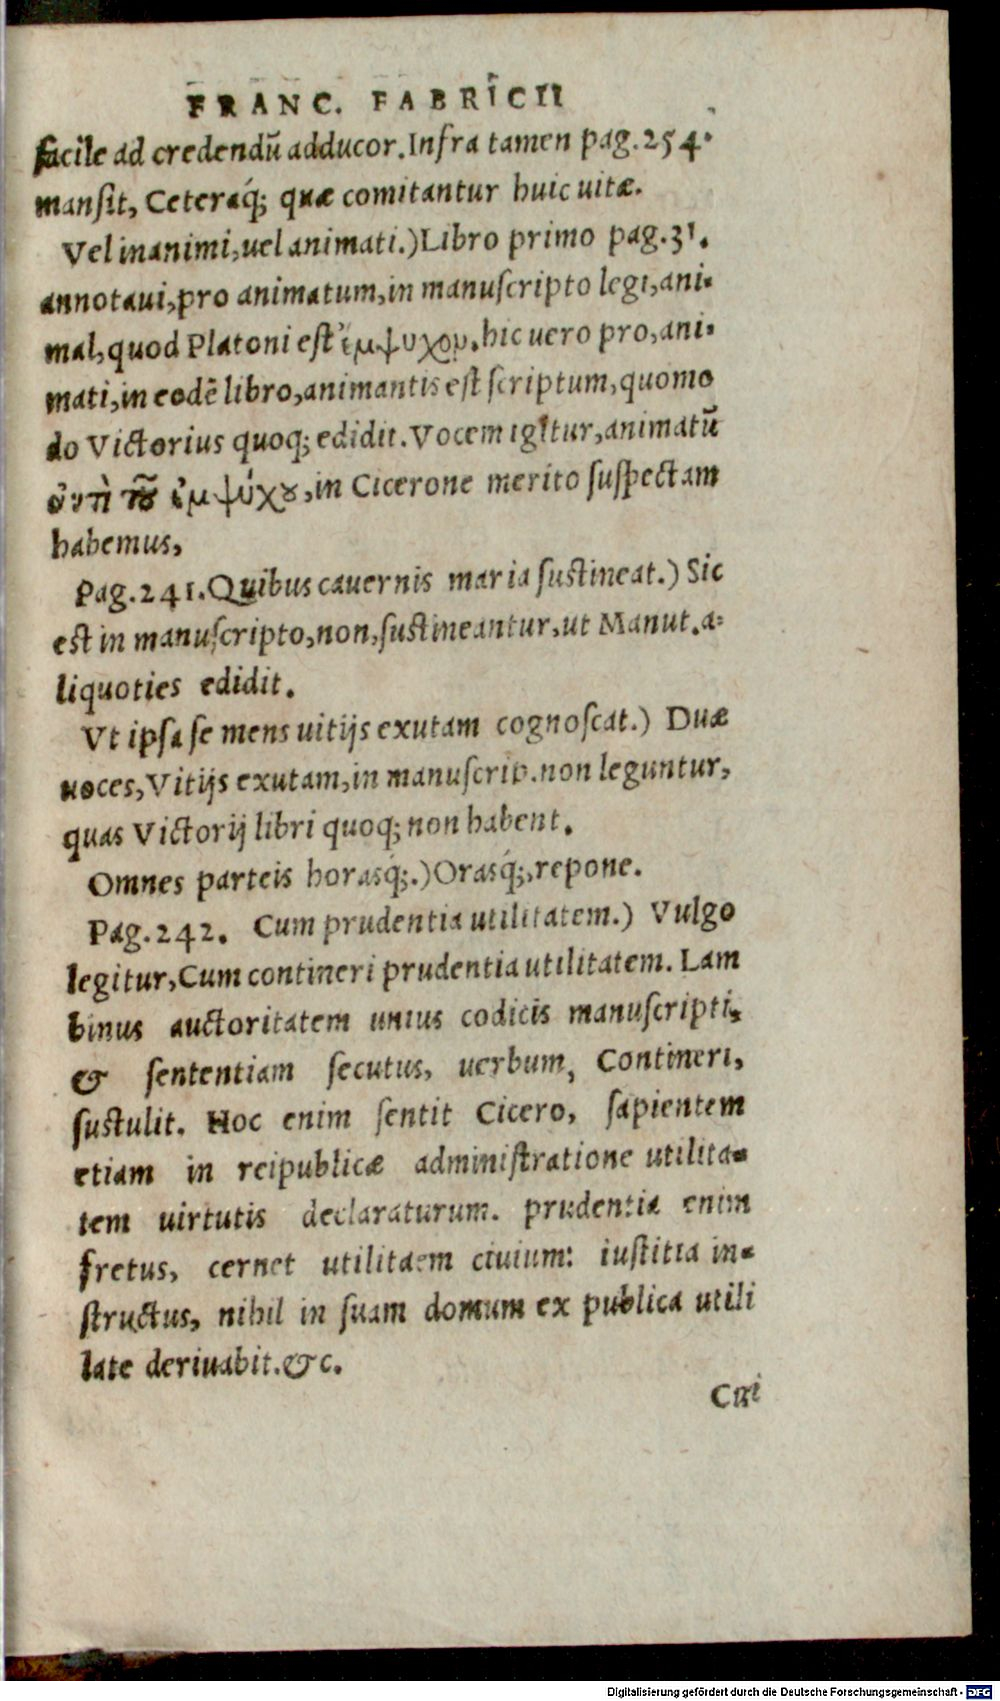 FRANC. FABRICII
facile ad credendū adducor. Infra tamen pag. 254.
mansit, Ceteraq́; quæ comitantur huic uitæ.
Vel inanimi, uel animati.) Libro primo pag. 31.
annotaui, pro animatum, in manuscripto legi, ani-
mal, quod Platoni est ἔμψυχον. hic uero pro, ani-
mati, in eodē libro, animantis est scriptum, quomo
do Victorius quoq; edidit. Vocem igitur, animatū
ἀντὶ τοῦ ἐμψύχου, in Cicerone merito suspectam
habemus,
Pag. 241. Quibus cauernis maria sustineat.) Sic
est in manuscripto, non, sustineantur, ut Manut. a-
liquoties edidit.
Vt ipsa se mens uitijs exutam cognoscat.) Duæ
uoces, Vitijs exutam, in manuscrip. non leguntur,
quas Victorij libri quoq; non habent.
Omnes parteis horasq́;.) Orasq́;, repone.
Pag. 242. Cum prudentia utilitatem.) Vulgo
legitur, Cum contineri prudentia utilitatem. Lam
binus auctoritatem unius codicis manuscripti,
& sententiam secutus, uerbum, Contineri,
sustulit. Hoc enim sentit Cicero, sapientem
etiam in reipublicæ administratione utilita-
tem uirtutis declaraturum. prudentia enim
fretus, cernet utilitaem ciuium: iustitia in-
structus, nihil in suam domum ex publica utili
tate deriuabit. &c.
Cui
Digitalisierung gefördert durch die Deutsche Forschungsgemeinschaft - DFG